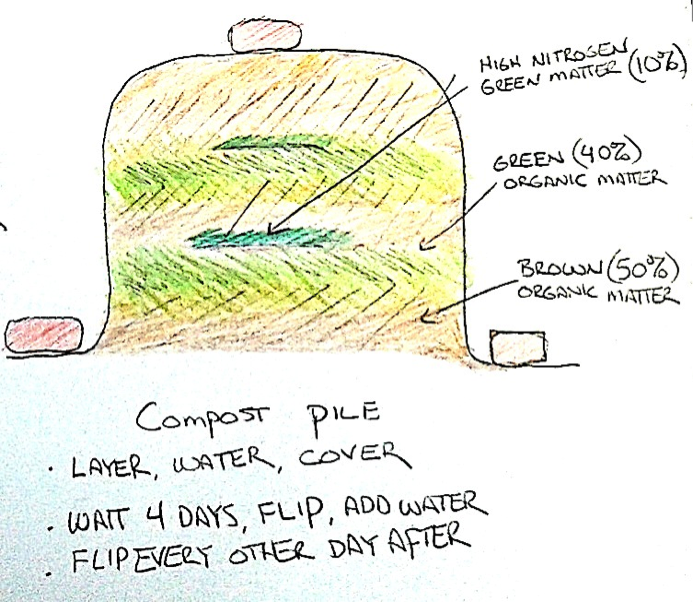 HIGH NITROGEN
GREEN MATTER (10%)
GREEN (40%)
ORGANIC MATTER
BROWN (50%)
ORGANIC MATTER
COMPOST PILE
· LAYER, WATER, COVER
· WAIT 4 DAYS, FLIP, ADD WATER
· FLIP EVERY OTHER DAY AFTER